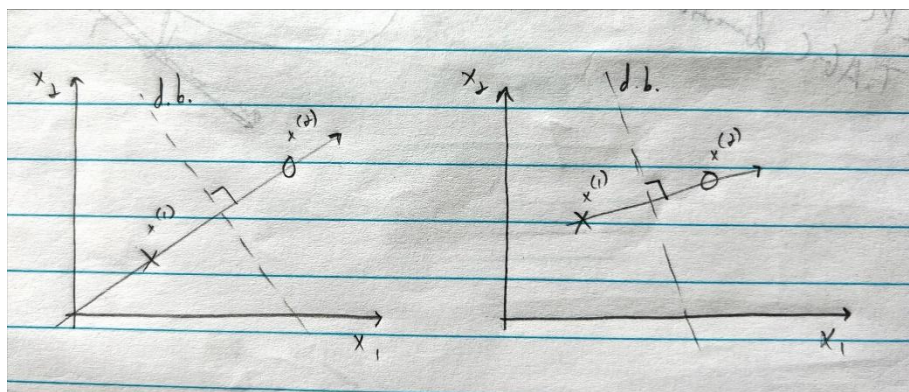 x₂
d.b.
x⁽²⁾
x⁽¹⁾
x₁
x₂
d.b.
x⁽²⁾
x⁽¹⁾
x₁